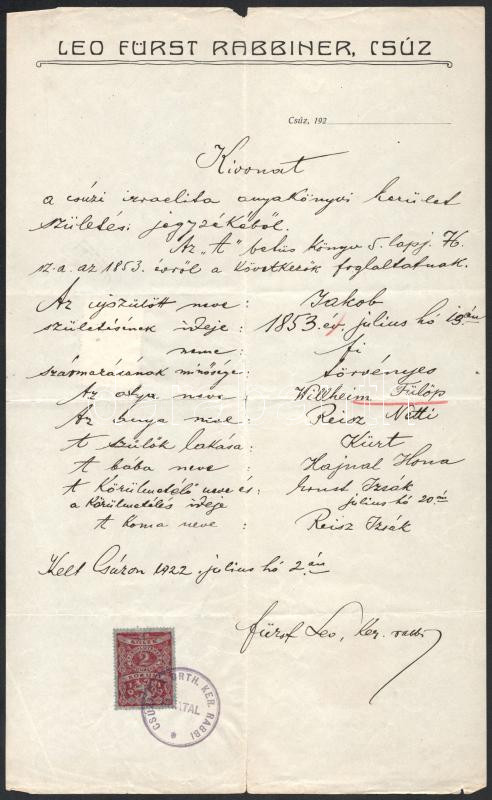 LEO FÜRST RABBINER, CSÚZ
Csúz, 192
Kivonat
a csúzi izraelita anyakönyvi kerület
születési jegyzékéből.
Az „A" betüs könyv 5. lapj. 76.
sz. a. az 1853. évről a következők foglaltatnak.
Az ujszülött neve: Jakob
születésének ideje: 1853. év. július hó 13án
neme: fi
Származásának minősége: törvényes
Az atya neve: Willheim Fülöp
Az anya neve Reisz Netti
A szülők lakása: Kürt
A bába neve: Hajnal Ilona
A körülmetélő neve és: Izsák
a körülmetélés ideje július hó 20án
A koma neve: Reisz Izsák
Kelt Csúzon 1922. július hó 2án
Fürst Leo, ker. rabbi
2
ORTH. KER. RABBI